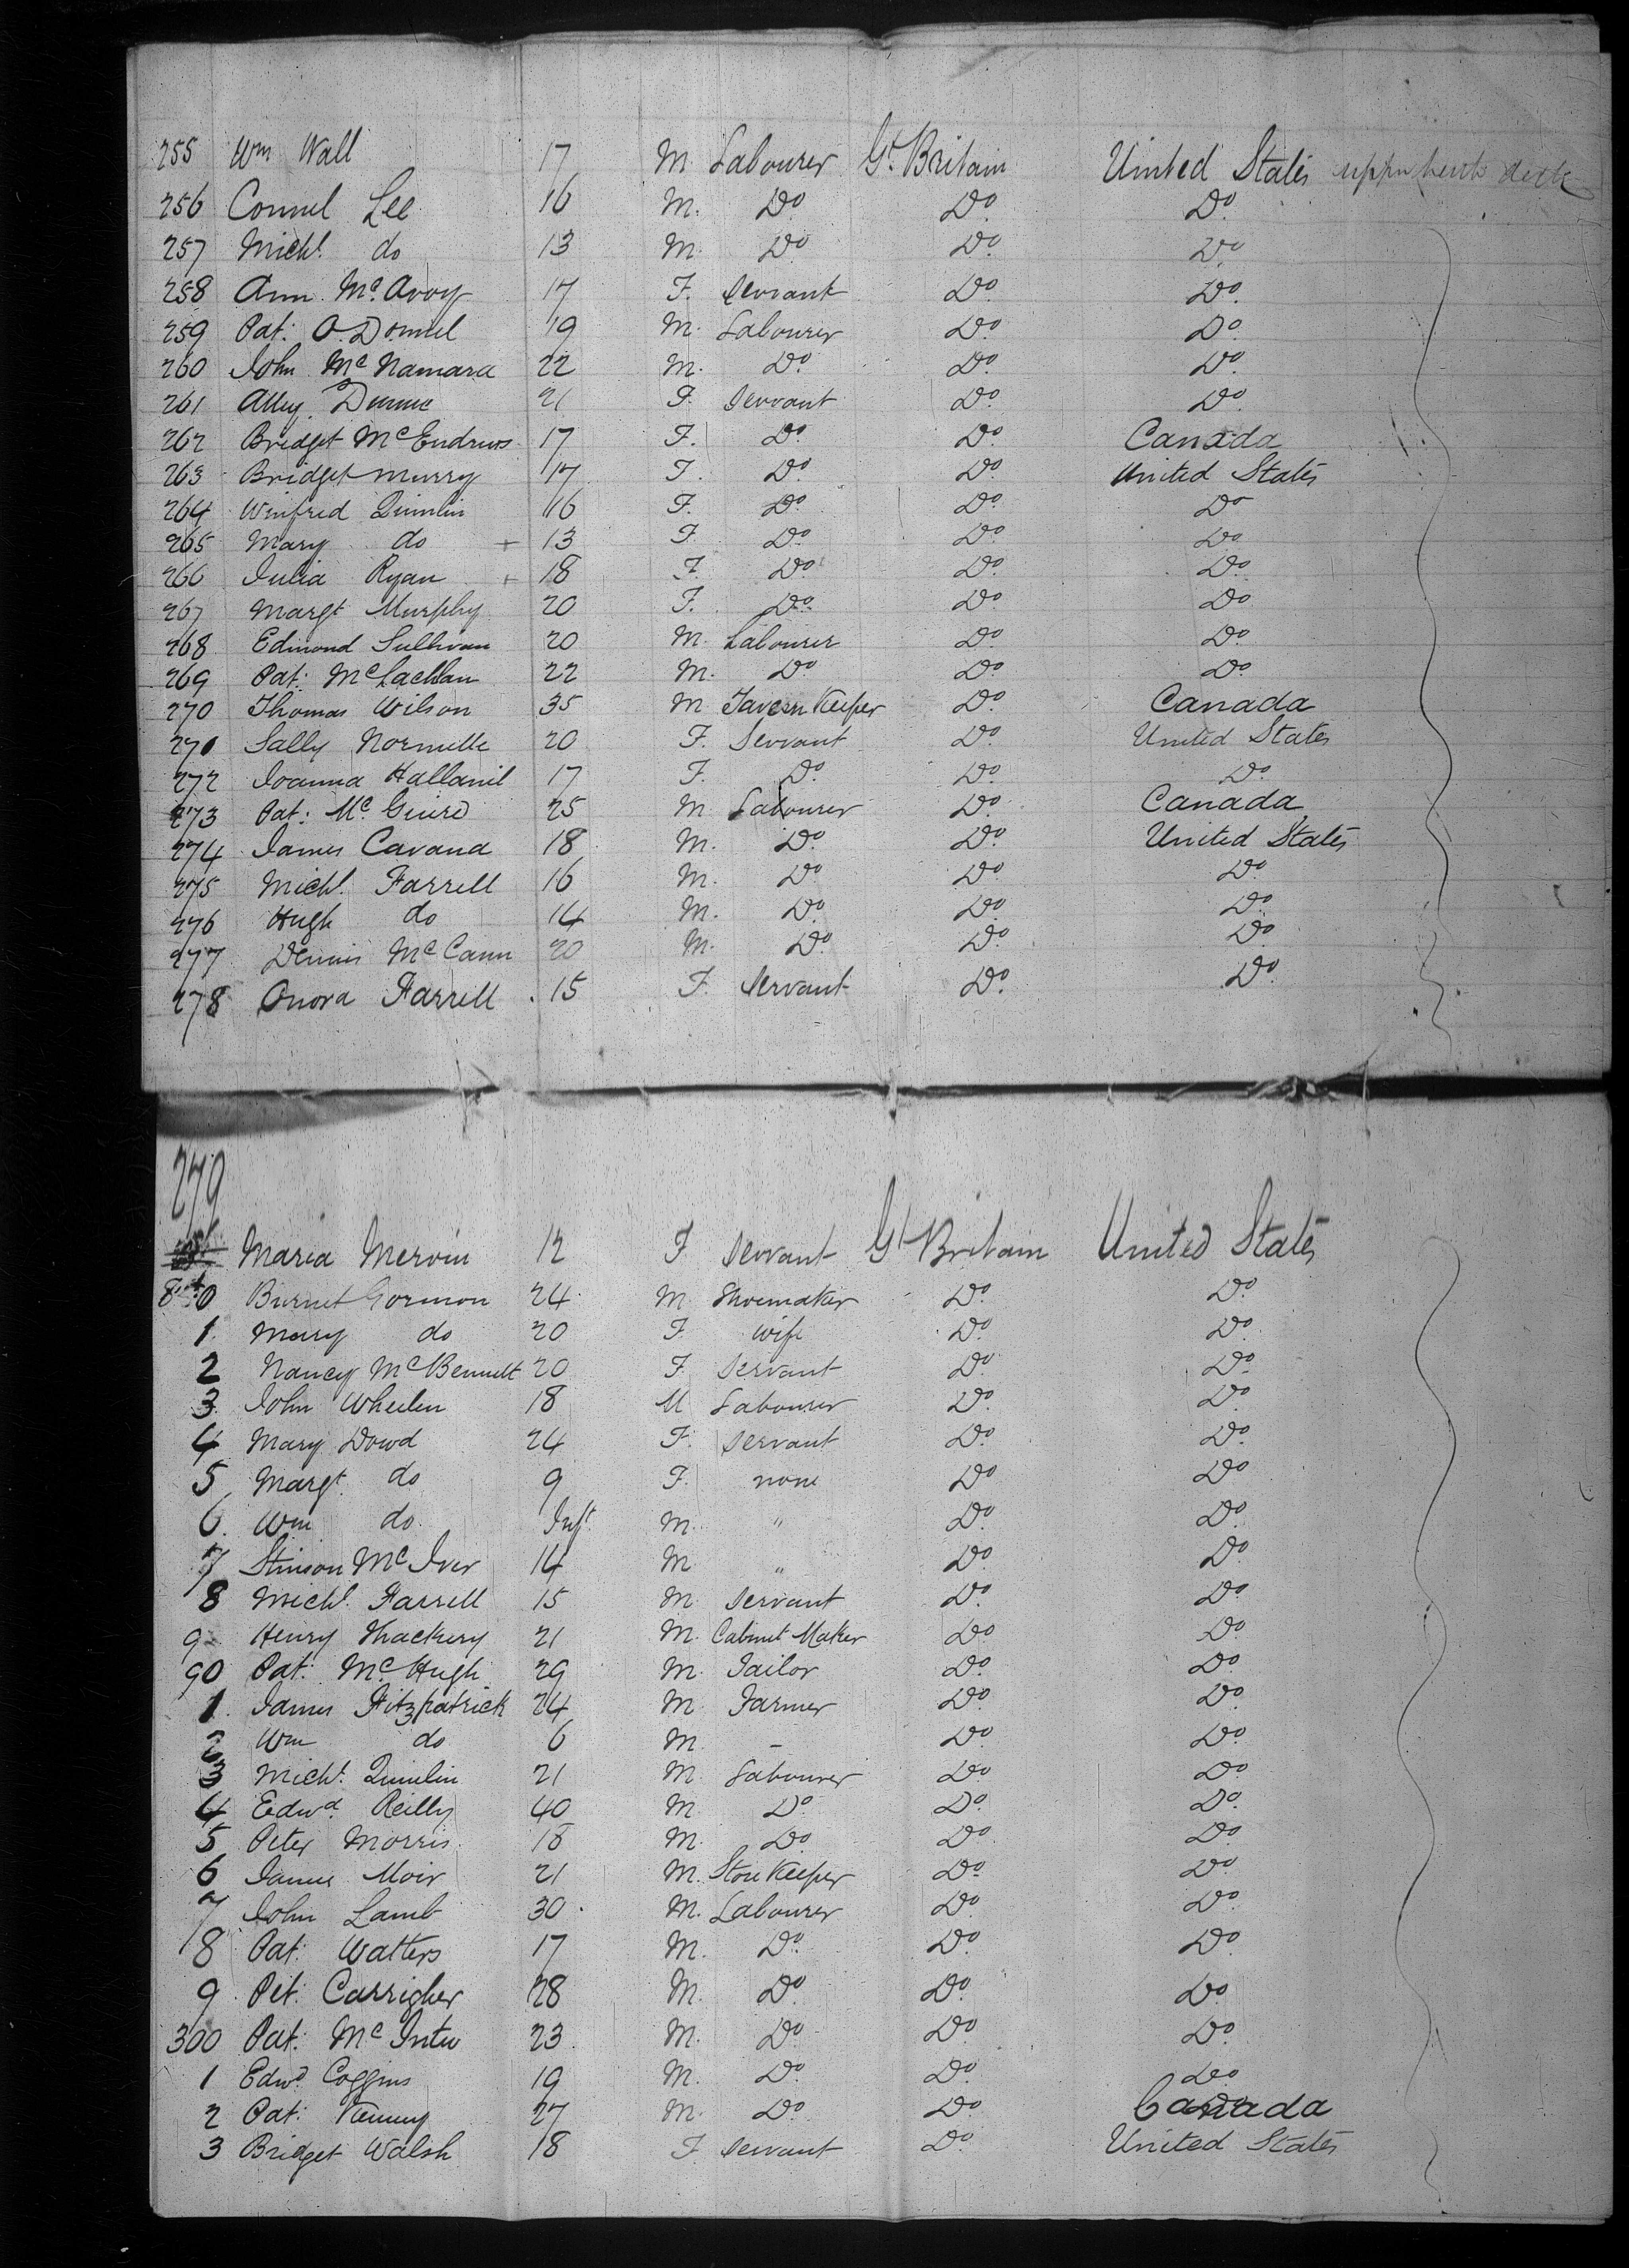 255 Wm Wall 17 M Labourer Gt. Britain United States
256 Connel Lee 16 M. Do Do Do
257 Michl. do 13 M. Do Do Do
258 Ann McAvoy 17 F. Servant Do Do
259 Pat: O.Donnel 19 M. Labourer Do Do
260 John McNamara 22 M. Do Do Do
261 Alley Dunne 21 F. Servant Do Do
262 Bridget McEndrws 17 F. Do Do Canada
263 Bridget Murry 17 F. Do Do United States
264 Winfred Quinlin 16 F. Do Do Do
265 Mary do + 13 F Do Do Do
266 Julia Ryan + 18 F. Do Do Do
267 Margt Murphy 20 F. Do Do Do
268 Edmond Sullivan 20 M. Labourer Do Do
269 Pat: McLachlan 22 M. Do Do Do
270 Thomas Wilson 35 M Tavern Keeper Do Canada
271 Sally Normille 20 F. Servant Do United States
272 Joanna Hallanil 17 F. Do Do Do
273 Pat: McGuire 25 M Labourer Do Canada
274 James Cavana 18 M. Do Do United States
275 Michl. Farrell 16 M. Do Do Do
276 Hugh do 14 M. Do Do Do
277 Dennis McCann 20 M. Do Do Do
278 Onora Farrell 15 F. Servant Do Do
279
Maria Mervin 12 F Servant Gt Britain United States
80 Burnet Gormon 24 M Shoemaker Do Do
1 Mary do 20 F wife Do Do
2 Nancy McBennett 20 F Servant Do Do
3 John Whelen 18 M Labourer Do Do
4 Mary Dowd 24 F. Servant Do Do
5 Margt. do 9 F. none Do Do
6. Wm do Inft. M. " Do Do
7 Stinson McIver 14 M " Do Do
8 Michl. Farrell 15 M Servant Do Do
9 Henry Thackery 21 M. Cabinet Maker Do Do
90 Pat: McHugh 29 M. Tailor Do Do
1. James Fitzpatrick 24 M Farmer Do Do
2 Wm do 6 M - Do Do
3 Michl. Quinlin 21 M Labourer Do Do
4 Edwd. Reilly 40 M. Do Do Do
5 Peter Morris 18 M. Do Do Do
6 James Moir 21 M. Store Keeper Do Do
7 John Lamb 30 M. Labourer Do Do
8 Pat: Watters 17 M. Do Do Do
9 Pet: Carrigher 28 M. Do Do Do
300 Pat: McInter 23 M. Do Do Do
1 Edwd. Coggins 19 M. Do Do Do
2 Pat: Kenny 27 M. Do Do Canada
3 Bridget Walsh 18 F Servant Do United States